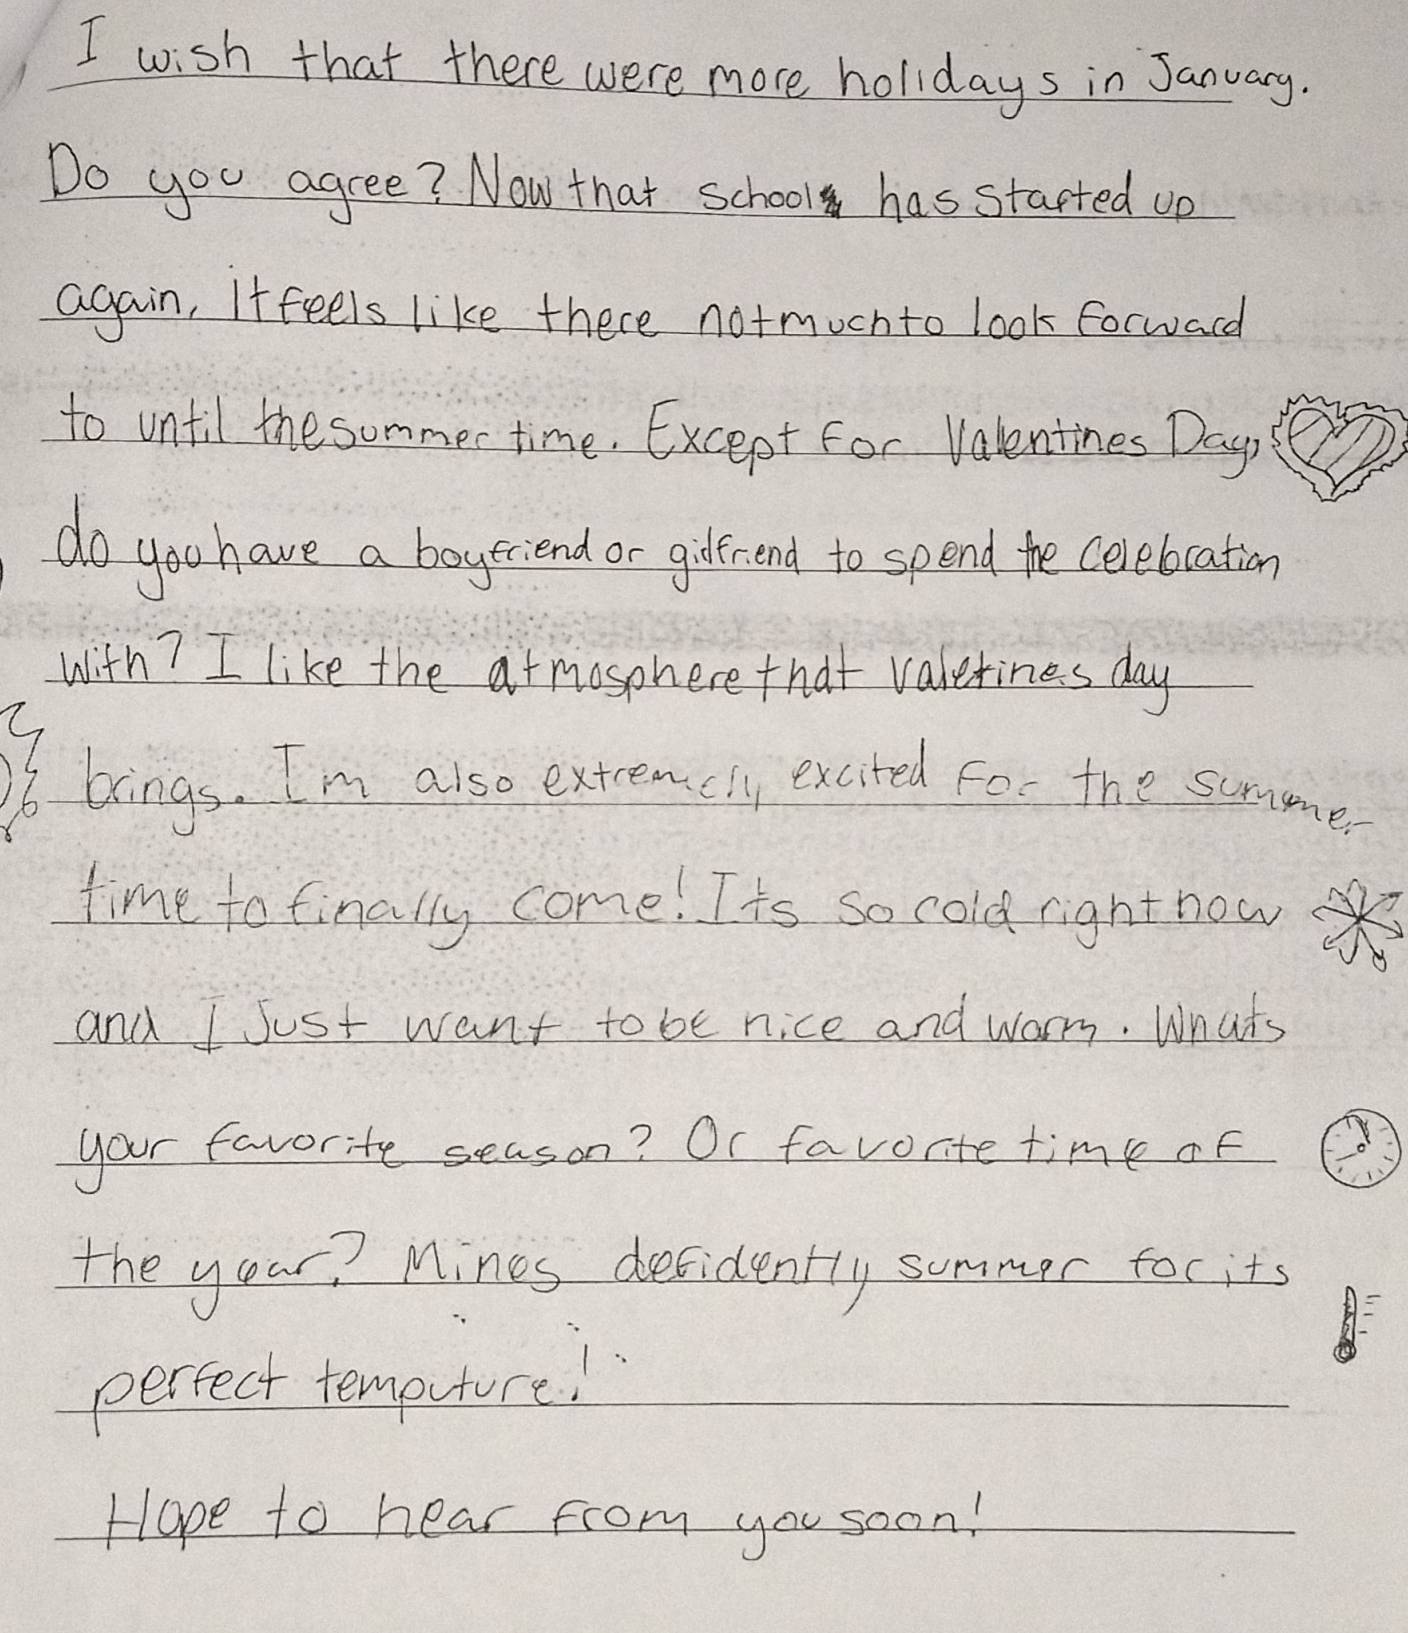 I wish that there were more holidays in January.
Do you agree? Now that school has started up
again, it feels like there not much to look forward
to until the summer time. Except for Valentines Day,
do you have a boyfriend or gidfriend to spend the celebration
with? I like the atmosphere that valetines day
brings. Im also extremely excited for the summer
time to finally come! Its so cold right now
and I Just want to be nice and warm. Whats
your favorite season? Or favorite time of
the year? Mines defidently summer for its
perfect temputure!
Hope to hear from you soon!